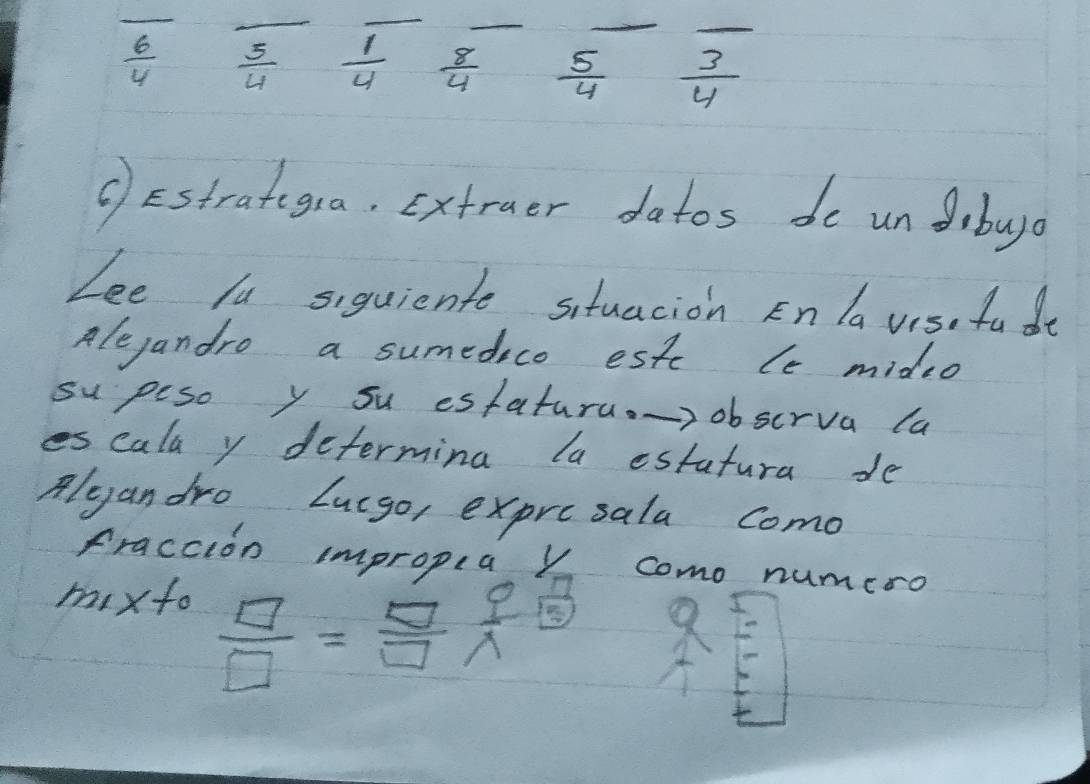 6/4 5/4 1/4 8/4 5/4 3/4
c) Estrategia. Extraer datos de un dibujo
Lee la siguiente situación En la visita de
Alejandro a sumedico este le midio
su peso y su estatura. → observa la
es cala y determina la estatura de
Alejandro Luego, expresala como
fracción impropia y como numero
mixto □/□ = □/□